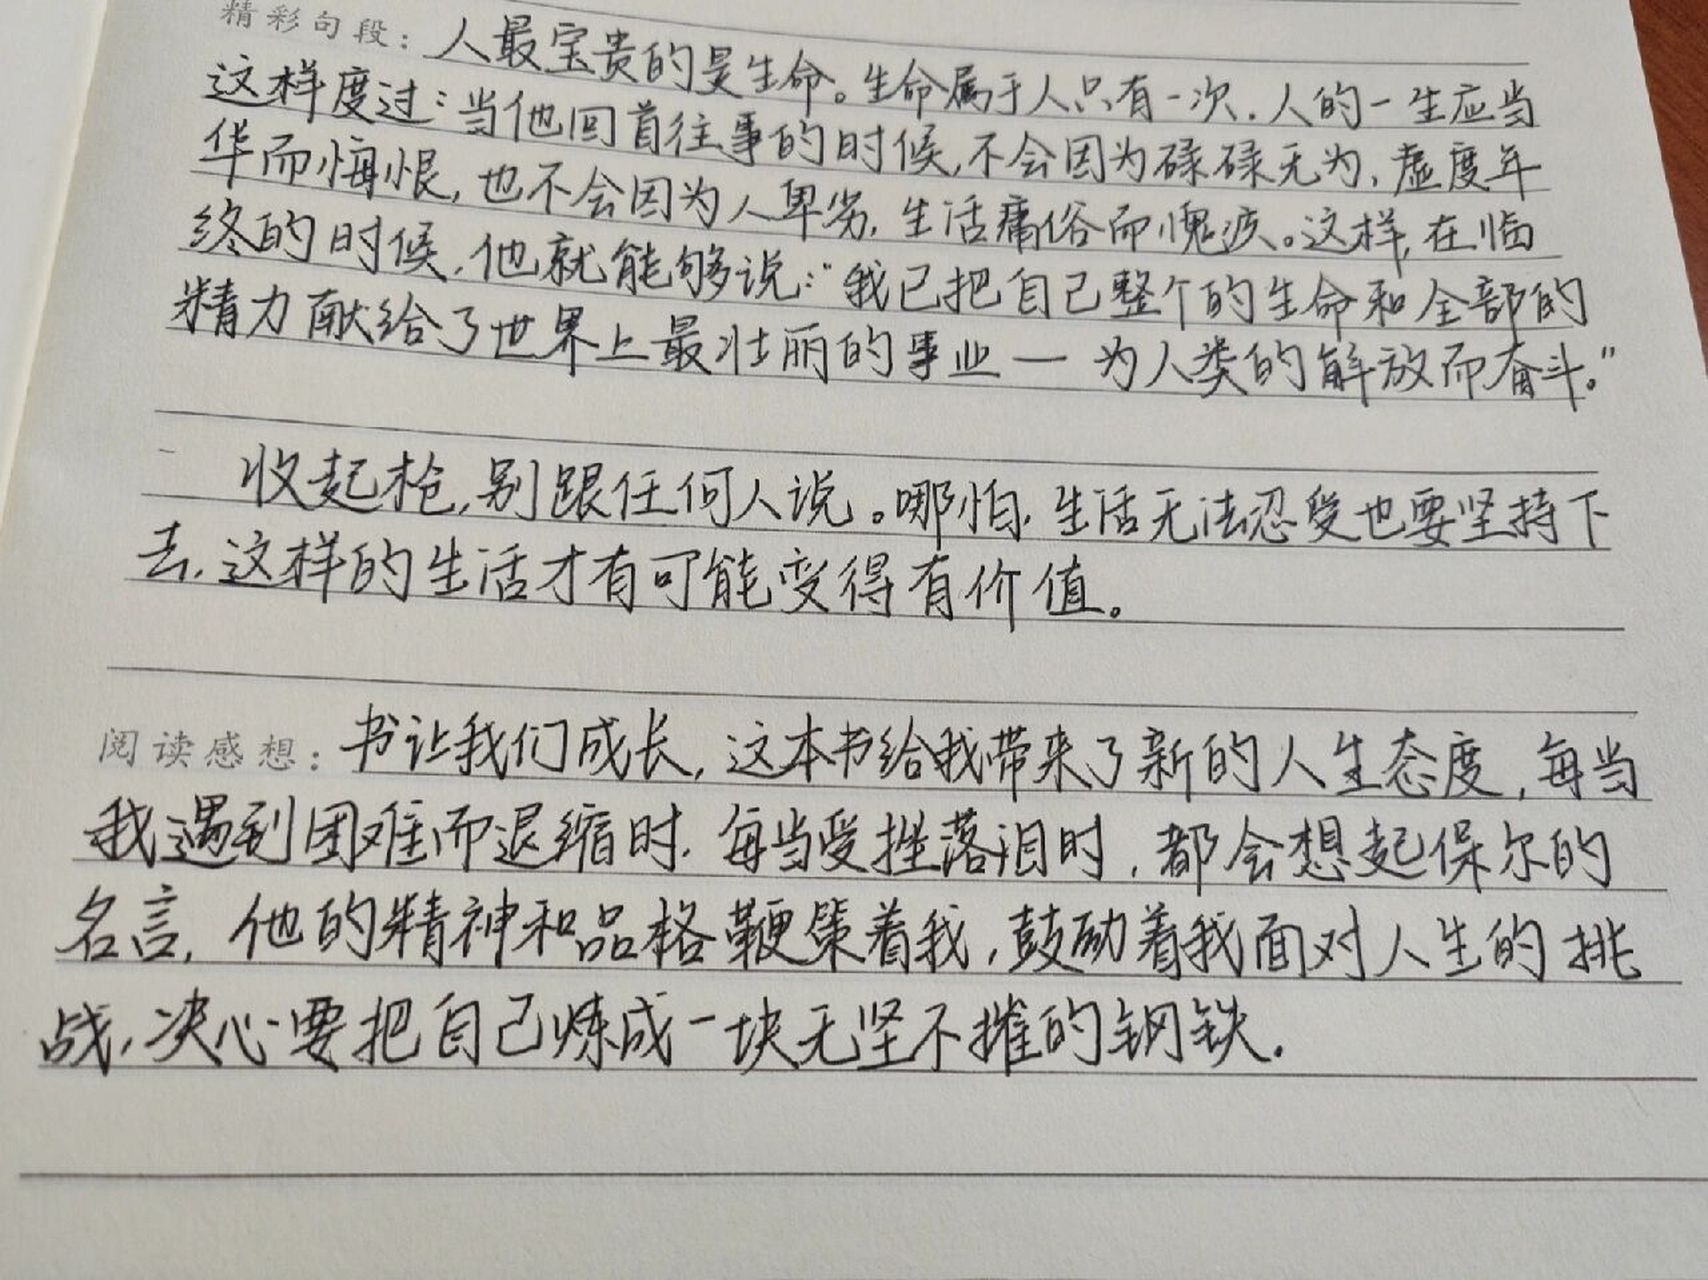 精彩句段：人最宝贵的是生命。生命属于人只有一次．人的一生应当
这样度过：当他回首往事的时候，不会因为碌碌无为，虚度年
华而悔恨，也不会因为人卑劣，生活庸俗而愧疚。这样，在临
终的时候，他就能够说：“我已把自己整个的生命和全部的
精力献给了世界上最壮丽的事业—为人类的解放而奋斗。”
收起枪，别跟任何人说。哪怕，生活无法忍受也要坚持下
去，这样的生活才有可能变得有价值。
阅读感想：书让我们成长，这本书给我带来了新的人生态度，每当
我遇到困难而退缩时，每当受挫落泪时，都会想起保尔的
名言，他的精神和品格鞭策着我，鼓励着我面对人生的挑
战，决心要把自己炼成一块无坚不摧的钢铁．